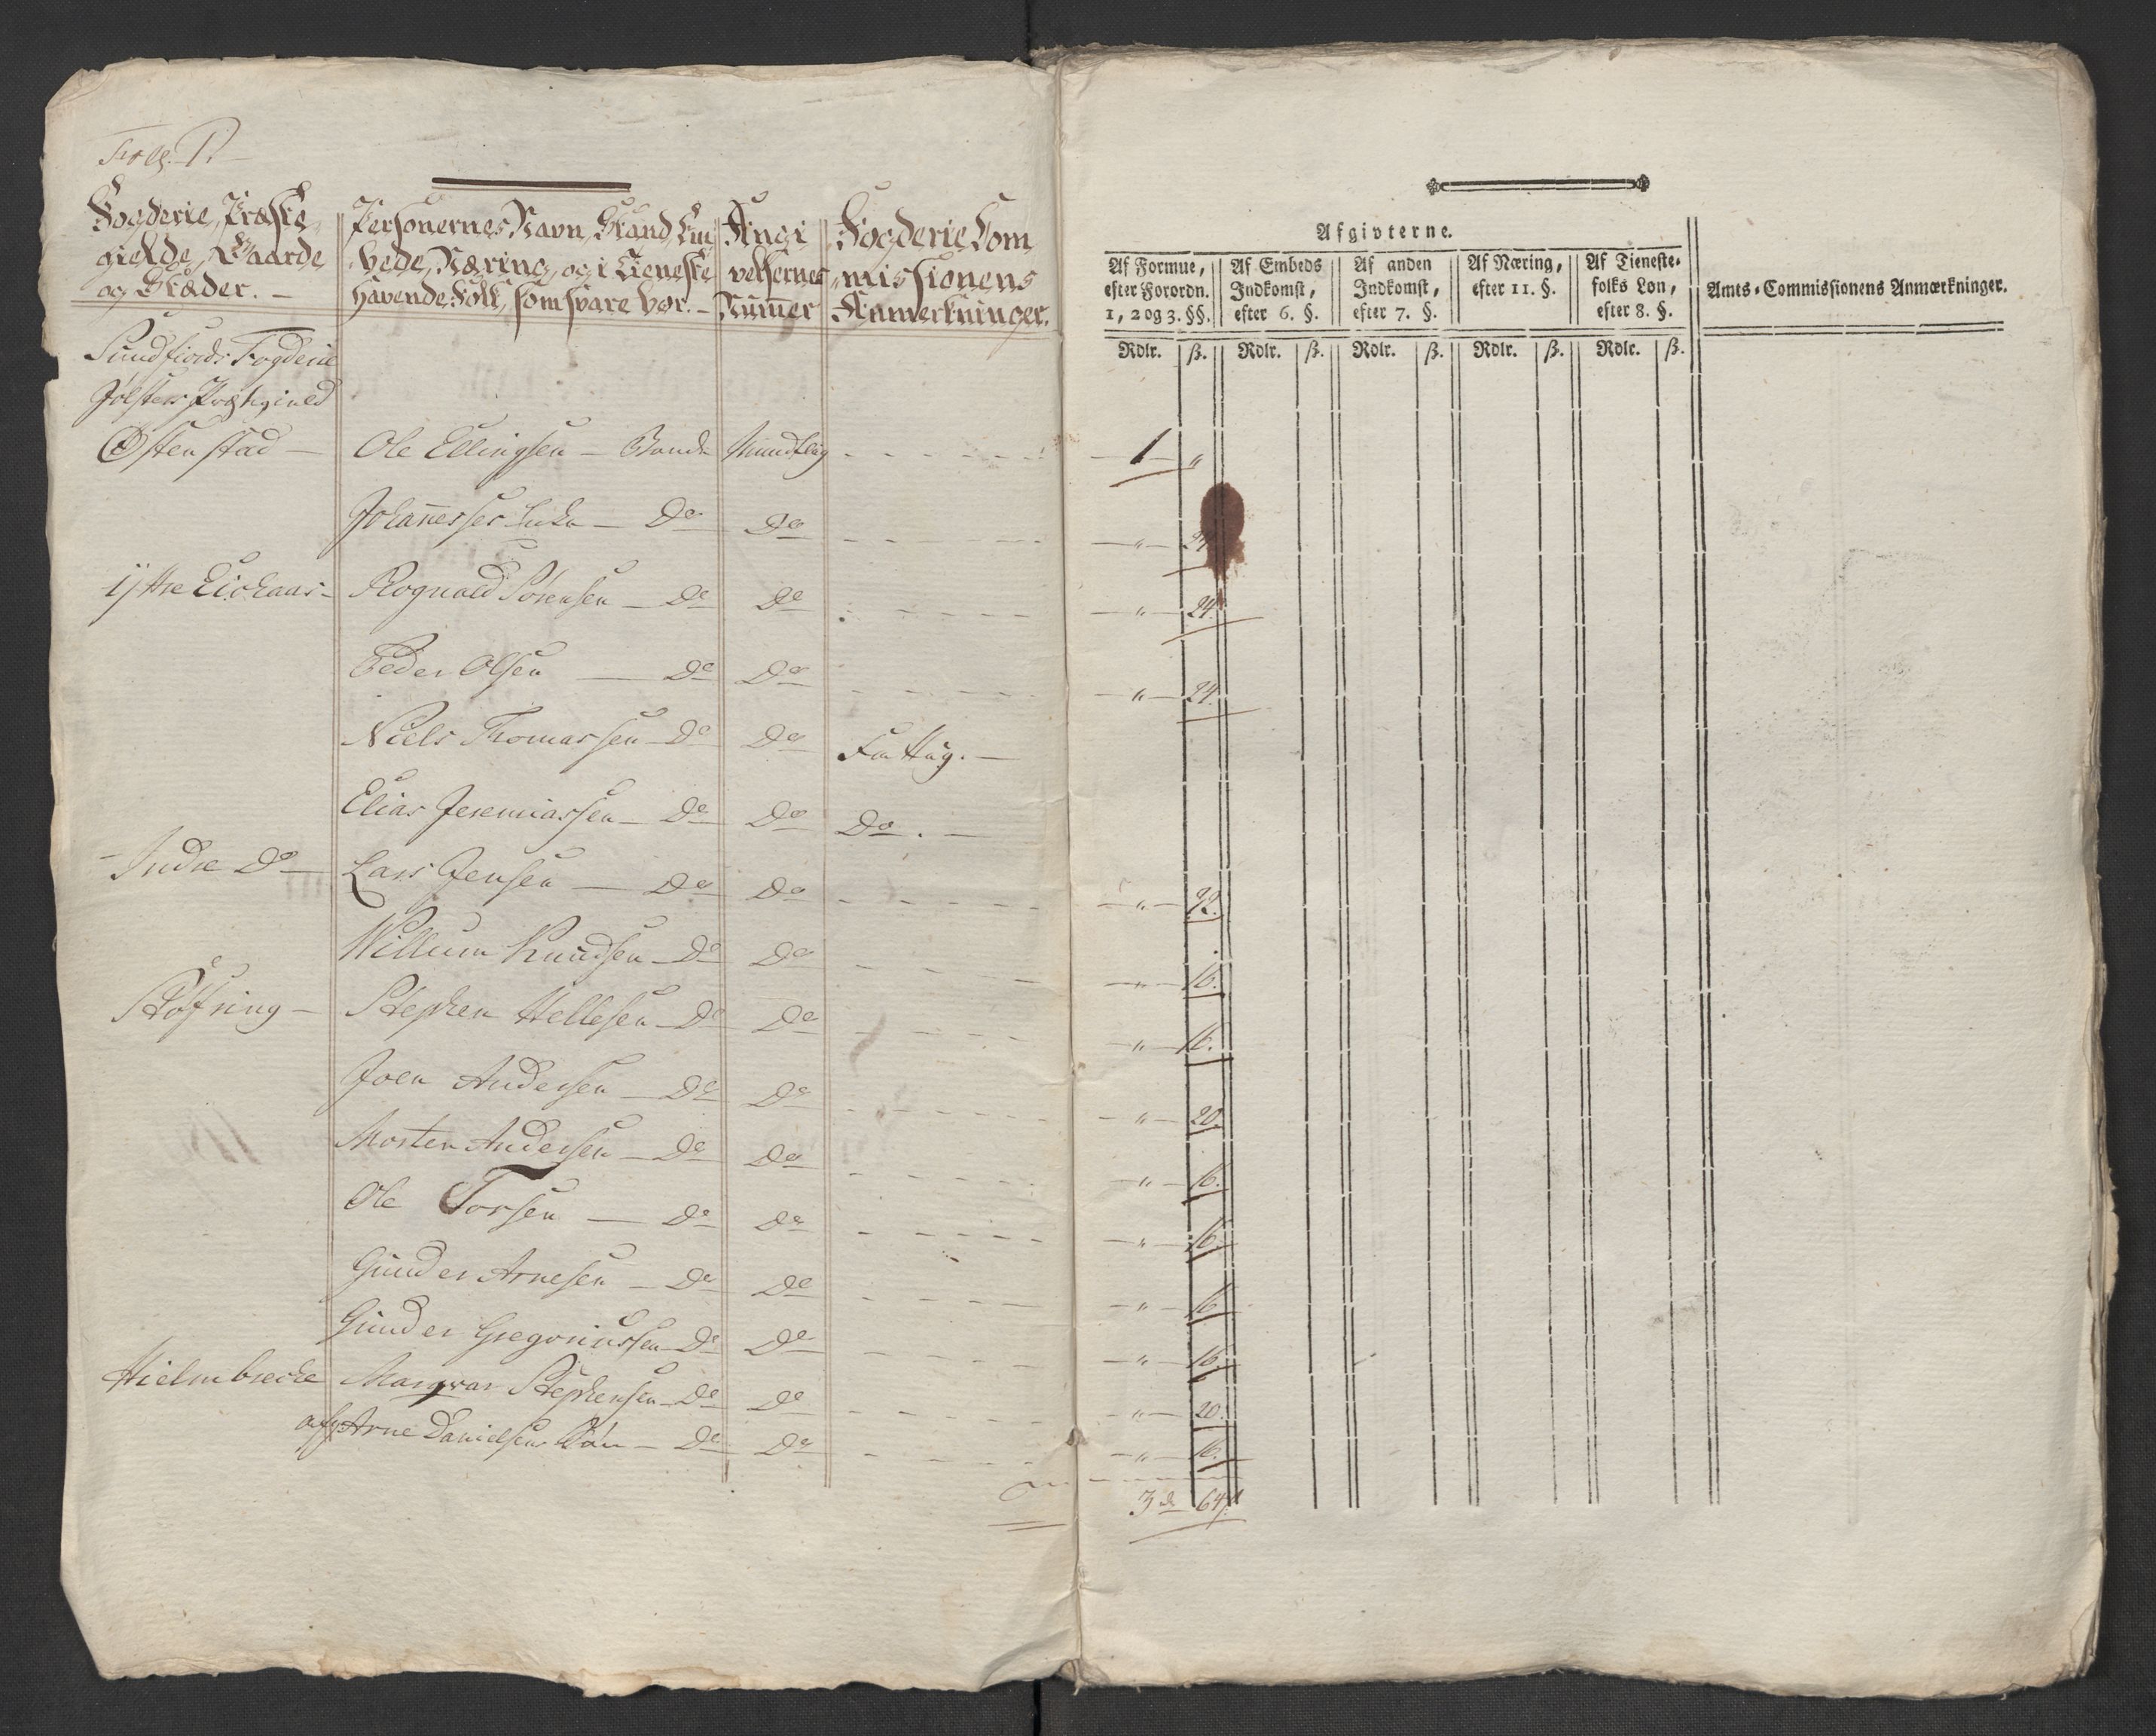 Fogderie, Præste
gielde, Gaarde
og Stæder. —
Personernes Navn, Stand, Em
bede, Næring, og i Tieneste
havende Folk, som svare bør. —
Angi
velsernes
Numer
Fogderie Com
missionens
Anmerkninger.
Afgivterne.
Af Formue,
efter Forordn.
1, 2 og 3. §§.
Af Embeds
Indkomst,
efter 6. §.
Af anden
Indkomst,
efter 7. §.
Af Næring,
efter 11. §.
Af Tieneste-
folks Løn,
efter 8. §.
Amts-Commissionens Anmærkninger.
Rdlr. ß. Rdlr. ß. Rdlr. ß. Rdlr. ß. Rdlr. ß.
Sundfiords Fogderie
Jølsters Præstegield
Østenstad — Ole Ellingsen — Bonde Mundtlig 1 "
Johannesses Enke — Do Do "
Yttre Eichaas — Rognald Sørensen — Do Do " 24.
Peder Olsen — Do Do " 24.
Niels Thomassen — Do Do Fattig. —
Elias Jeremiassen — Do Do Do. —
Indre Do — Lars Jensen — Do Do "
Willum Knudsen — Do Do " 16.
Støfring — Stephen Hellesen — Do Do " 16.
Joen Andersen — Do Do " 20.
Morten Andersen — Do Do " 16.
Ole Torsen — Do Do " 16.
Gunder Arnesen — Do Do " 16
Gunder Gregoriussen — Do Do " 16.
Hielmbrecke Stephensen — Do Do " 20.
Arne Danielsens — Do Do " 16.
3 d 64